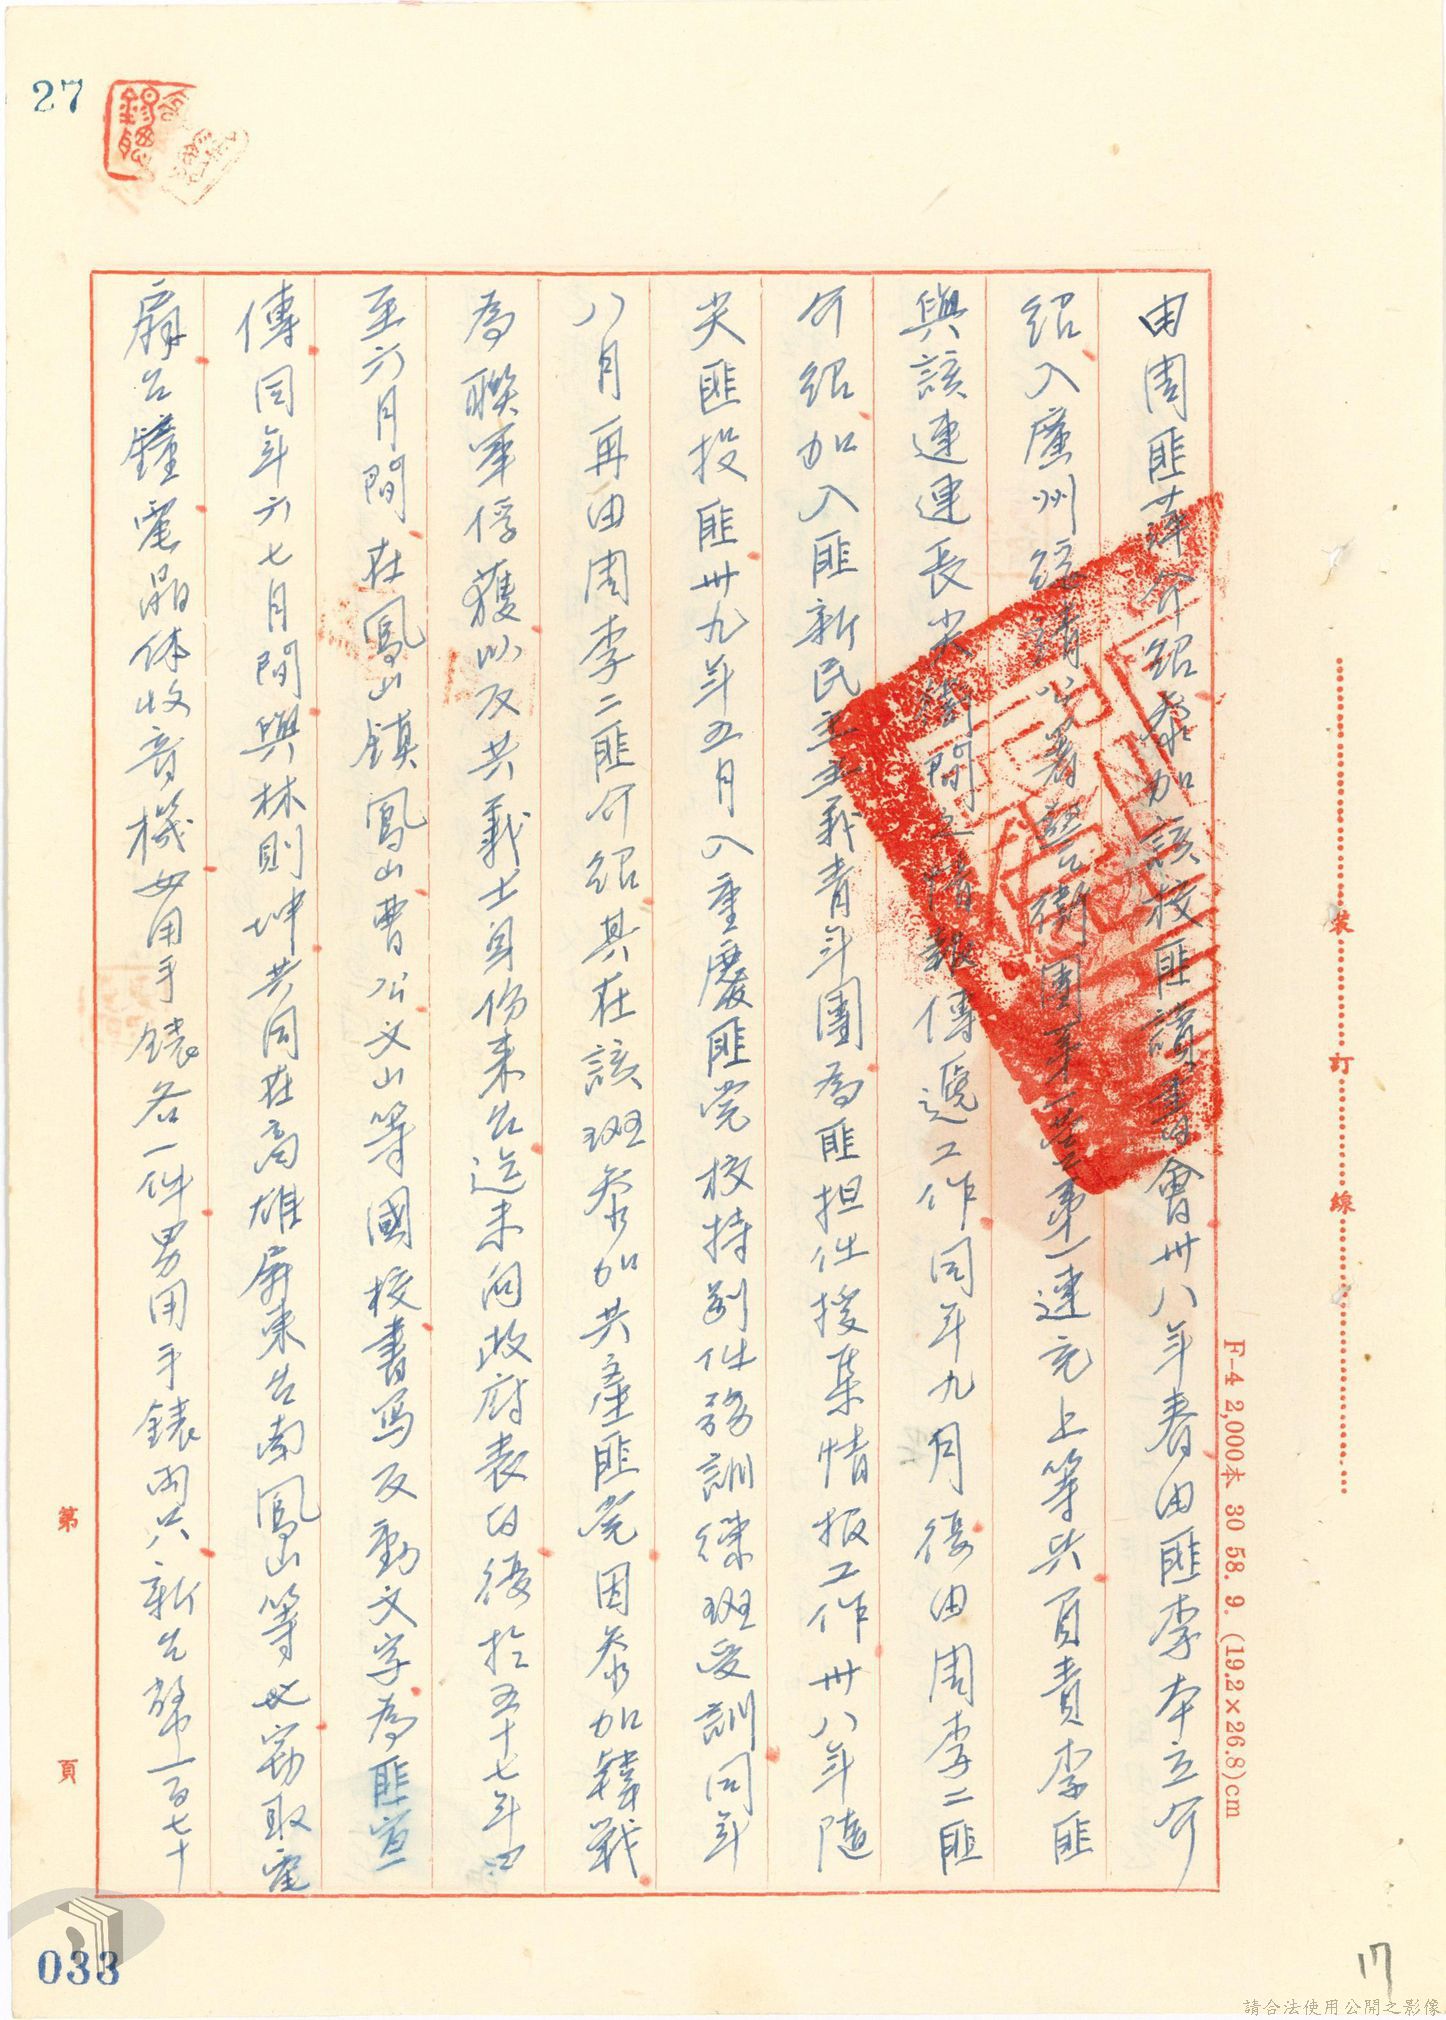 27
由周匪萍介紹參加該校匪讀書會卅八年春由匪李本立介
紹入廣州綏靖公署警衛團第一營第一連充上等兵負責李匪
與該連連長尖衛間之情報傳遞工作同年九月後由周李二匪
介紹加入匪新民主主義青年團為匪担任搜集情报工作卅八年隨
尖匪投匪卅九年五月入重慶匪党校特別任務訓練班受訓同年
八月再由周李二匪介紹其在該班參加共產匪党因參加韓戰
為聯軍俘獲以反共義士身份來台迄未向政府表白後於五十七年四
至六月間在鳳山鎮鳳山曹公文山等國校書写反動文字為匪宣
傳同年六七月間與林則坤共同在高雄屏東台南鳳山等地竊取電
扇台鐘電晶体收音機女用手錶各一件男用手錶兩只新台幣一百七十
裝訂線
F-4 2,000本 30 58. 9. (19.2×26.8)cm
第 頁
033
17
請合法使用公開之影像